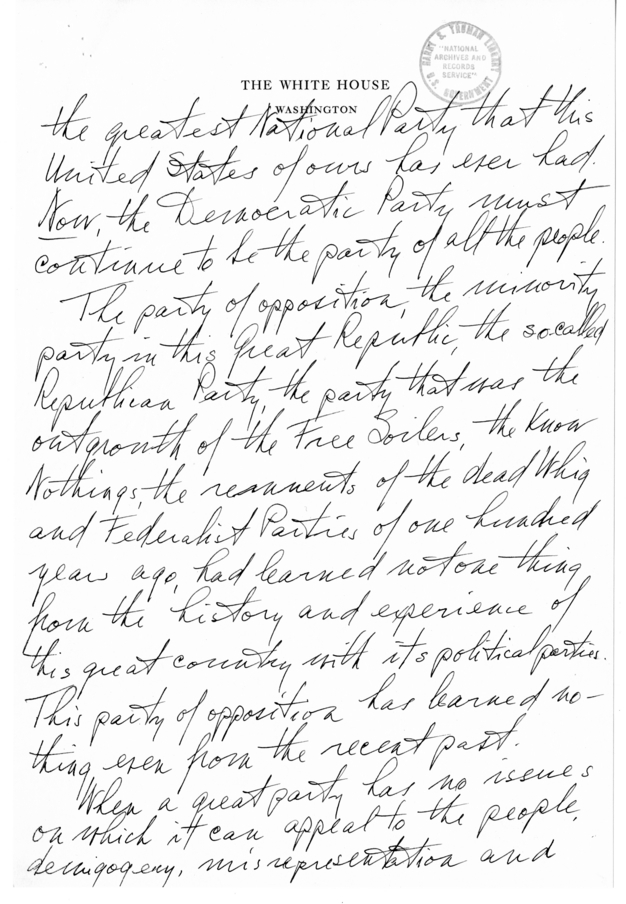 HARRY S. TRUMAN LIBRARY
"NATIONAL
ARCHIVES AND
RECORDS
SERVICE"
U.S. GOVERNMENT
THE WHITE HOUSE
WASHINGTON
the greatest National Party that this
United States of ours has ever had.
Now, the Democratic Party must
continue to be the party of all the people.
The party of opposition, the minority
party in this great Republic, the so-called
Republican Party, the party that was the
outgrowth of the Free Soilers, the Know
Nothings, the remnents of the dead Whig
and Federalist Parties of one hundred
years ago, had learned not one thing
from the history and experience of
this great country with its political parties.
This party of opposition has learned no-
thing even from the recent past.
When a great party has no issues
on which it can appeal to the people,
demigogery, misrepresentation and